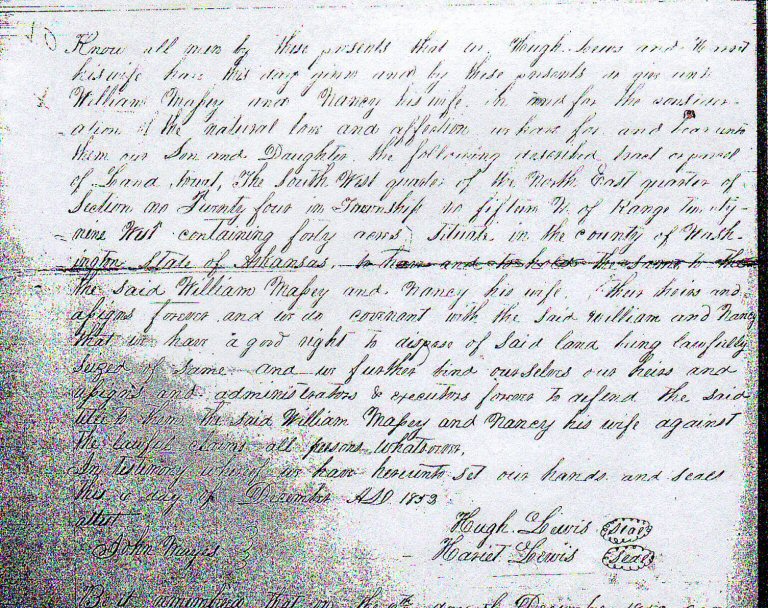 Know all men by these presents that we Hugh Lewis and
his wife have this day given and by these presents do give unto
William Massey and Nancy his wife. In and for the consider-
ation of the natural love and affection we have for and bear unto
them our Son and Daughter the following described tract or parcel
of Land, to wit, The South West quarter of the North East quarter of
Section no Twenty four in Township no fifteen N of Range Twenty-
nine West containing forty acres Situate in the county of Wash-
ington State of Arkansas, to have and to hold the same to the
the said William Massey and Nancy his wife, their heirs and
assigns forever and we do covenant with the said William and Nancy
that we have a good right to dispose of said land being lawfully
seized of same and we further bind ourselves our heirs and
assigns and administrators & executors forever to defend the said
title to them the said William Massey and Nancy his wife against
the lawful claims all persons whatsoever.
In testimony whereof we have hereunto set our hands and seals
this day of December AD 1853
attest
Hugh Lewis seal
John Mayes
Hariet Lewis seal
Be it remembered that on the day of December